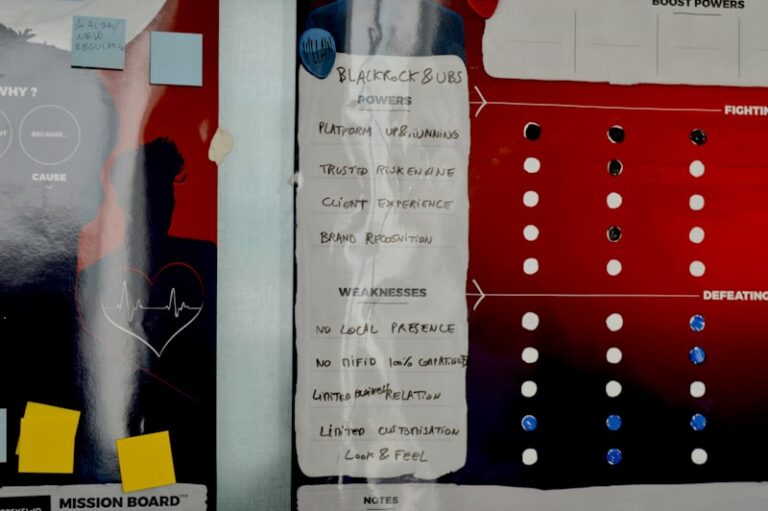 BOOST POWERS
NEW
REGULATIONS
WHY ?
BECAUSE...
CAUSE
VILLAIN
BLACKROCK & UBS
POWERS
PLATFORM UP & RUNNING
TRUSTED RISK ENGINE
CLIENT EXPERIENCE
BRAND RECOGNITION
WEAKNESSES
NO LOCAL PRESENCE
NO MIFID 100% COMPATIBLE
LIMITED BUSINESS RELATION
LIMITED CUSTOMISATION
LOOK & FEEL
FIGHTIN
DEFEATING
MISSION BOARD
NOTES